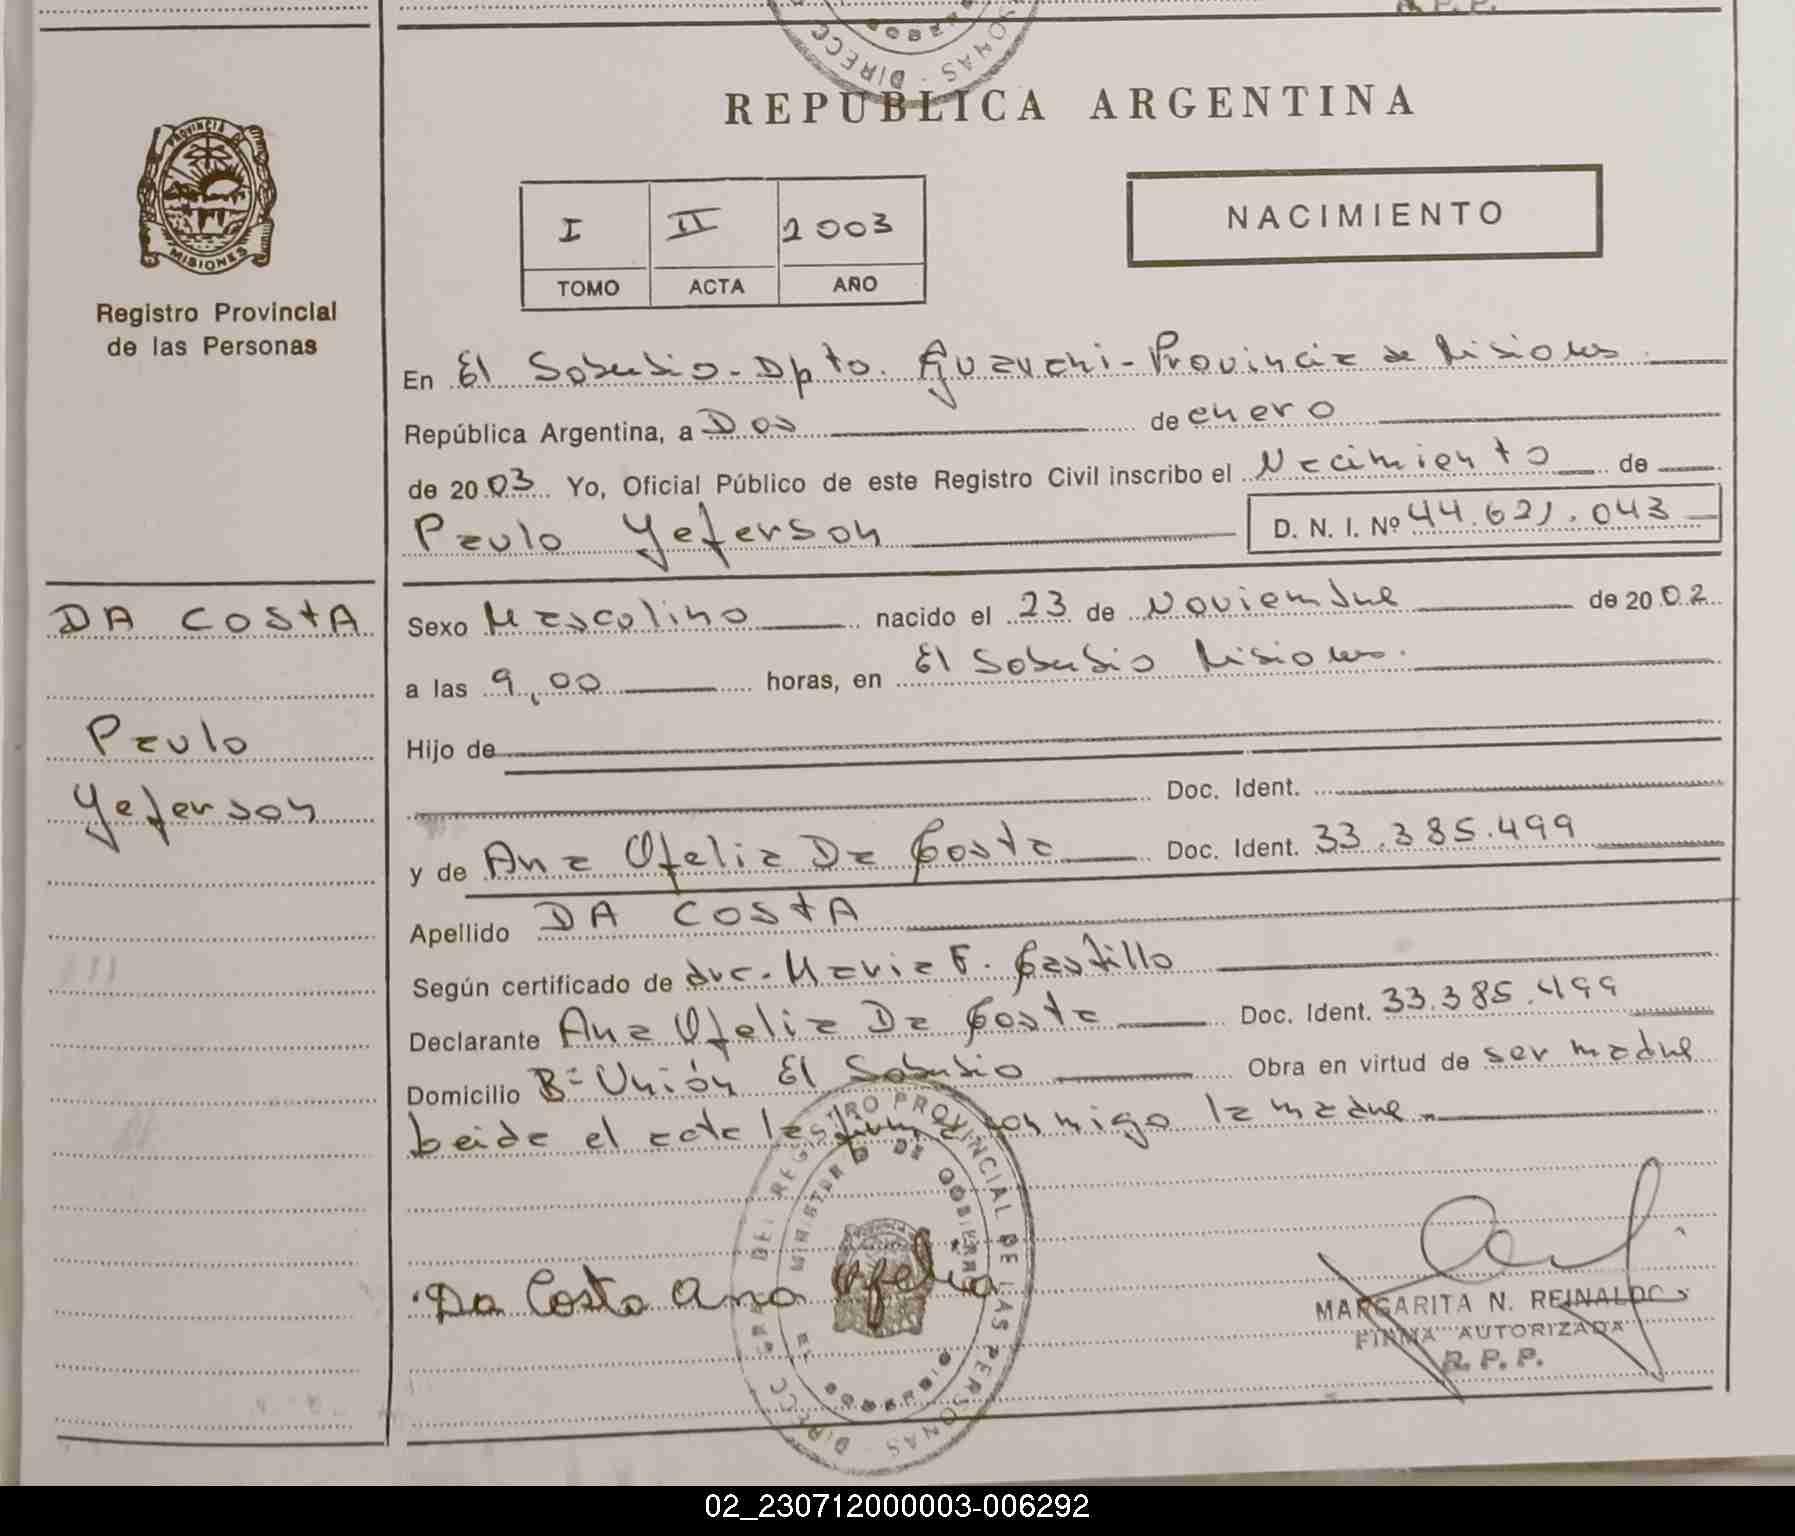 A. P. P.
REPUBLICA ARGENTINA
PROVINCIA DE
MISIONES
Registro Provincial
de las Personas
I II 2003
TOMO ACTA AÑO
NACIMIENTO
En El Soberbio - Dpto. Guarani - Provincia de Misiones
República Argentina, a Dos de enero
de 2003 Yo, Oficial Público de este Registro Civil inscribo el Nacimiento de
Paulo Yeferson D. N. I. Nº 44.621.043
DA COSTA
Paulo
Yeferson
Sexo Masculino nacido el 23 de Noviembre de 2002
a las 9,00 horas, en El Soberbio Misiones.
Hijo de
Doc. Ident.
y de Ana Ofelia Da Costa Doc. Ident. 33.385.499
Apellido DA COSTA
Según certificado de dra. Maria F. Castillo
Declarante Ana Ofelia Da Costa Doc. Ident. 33.385.499
Domicilio Bº Unión El Soberbio Obra en virtud de ser madre
Leida el acta la firma conmigo la madre.
DIRECC DEL REGISTRO PROVINCIAL DE LAS PERSONAS
MINISTERIO DE GOBIERNO
EL SOBERBIO
Da Costa Ana Ofelia
MARGARITA N. REINALDO
FIRMA AUTORIZADA
R. P. P.
02_230712000003-006292